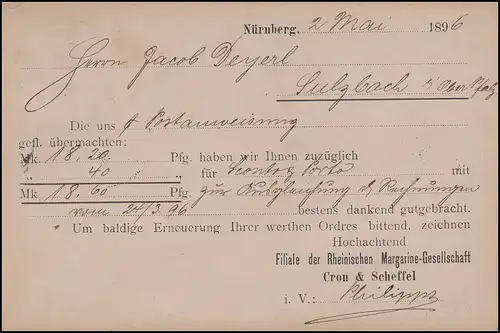 Nürnberg, 2 Mai 1896
Herrn Jacob Deyerl
Sulzbach i/ Ober Pfalz
Die uns p Postanweisung
gefl. übermachten:
Mk 18.20 Pfg. haben wir Ihnen zuzüglich
„ 40 „ für Sconto & Porto mit
Mk 18.60 Pfg. zur Ausgleichung d. Rechnungen
vom 24/3.96 bestens dankend gutgebracht.
Um baldige Erneuerung Ihrer werthen Ordres bittend, zeichnen
Hochachtend
Filiale der Rheinischen Margarine-Gesellschaft
Cron & Scheffel
i. V.: Philippi